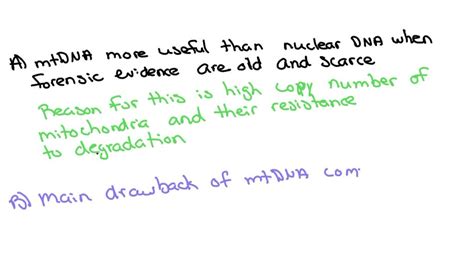 A) mtDNA more useful than nuclear DNA when
forensic evidence are old and scarce
Reason for this is high copy number of
mitochondria and their resistance
to degradation
B) main drawback of mtDNA com